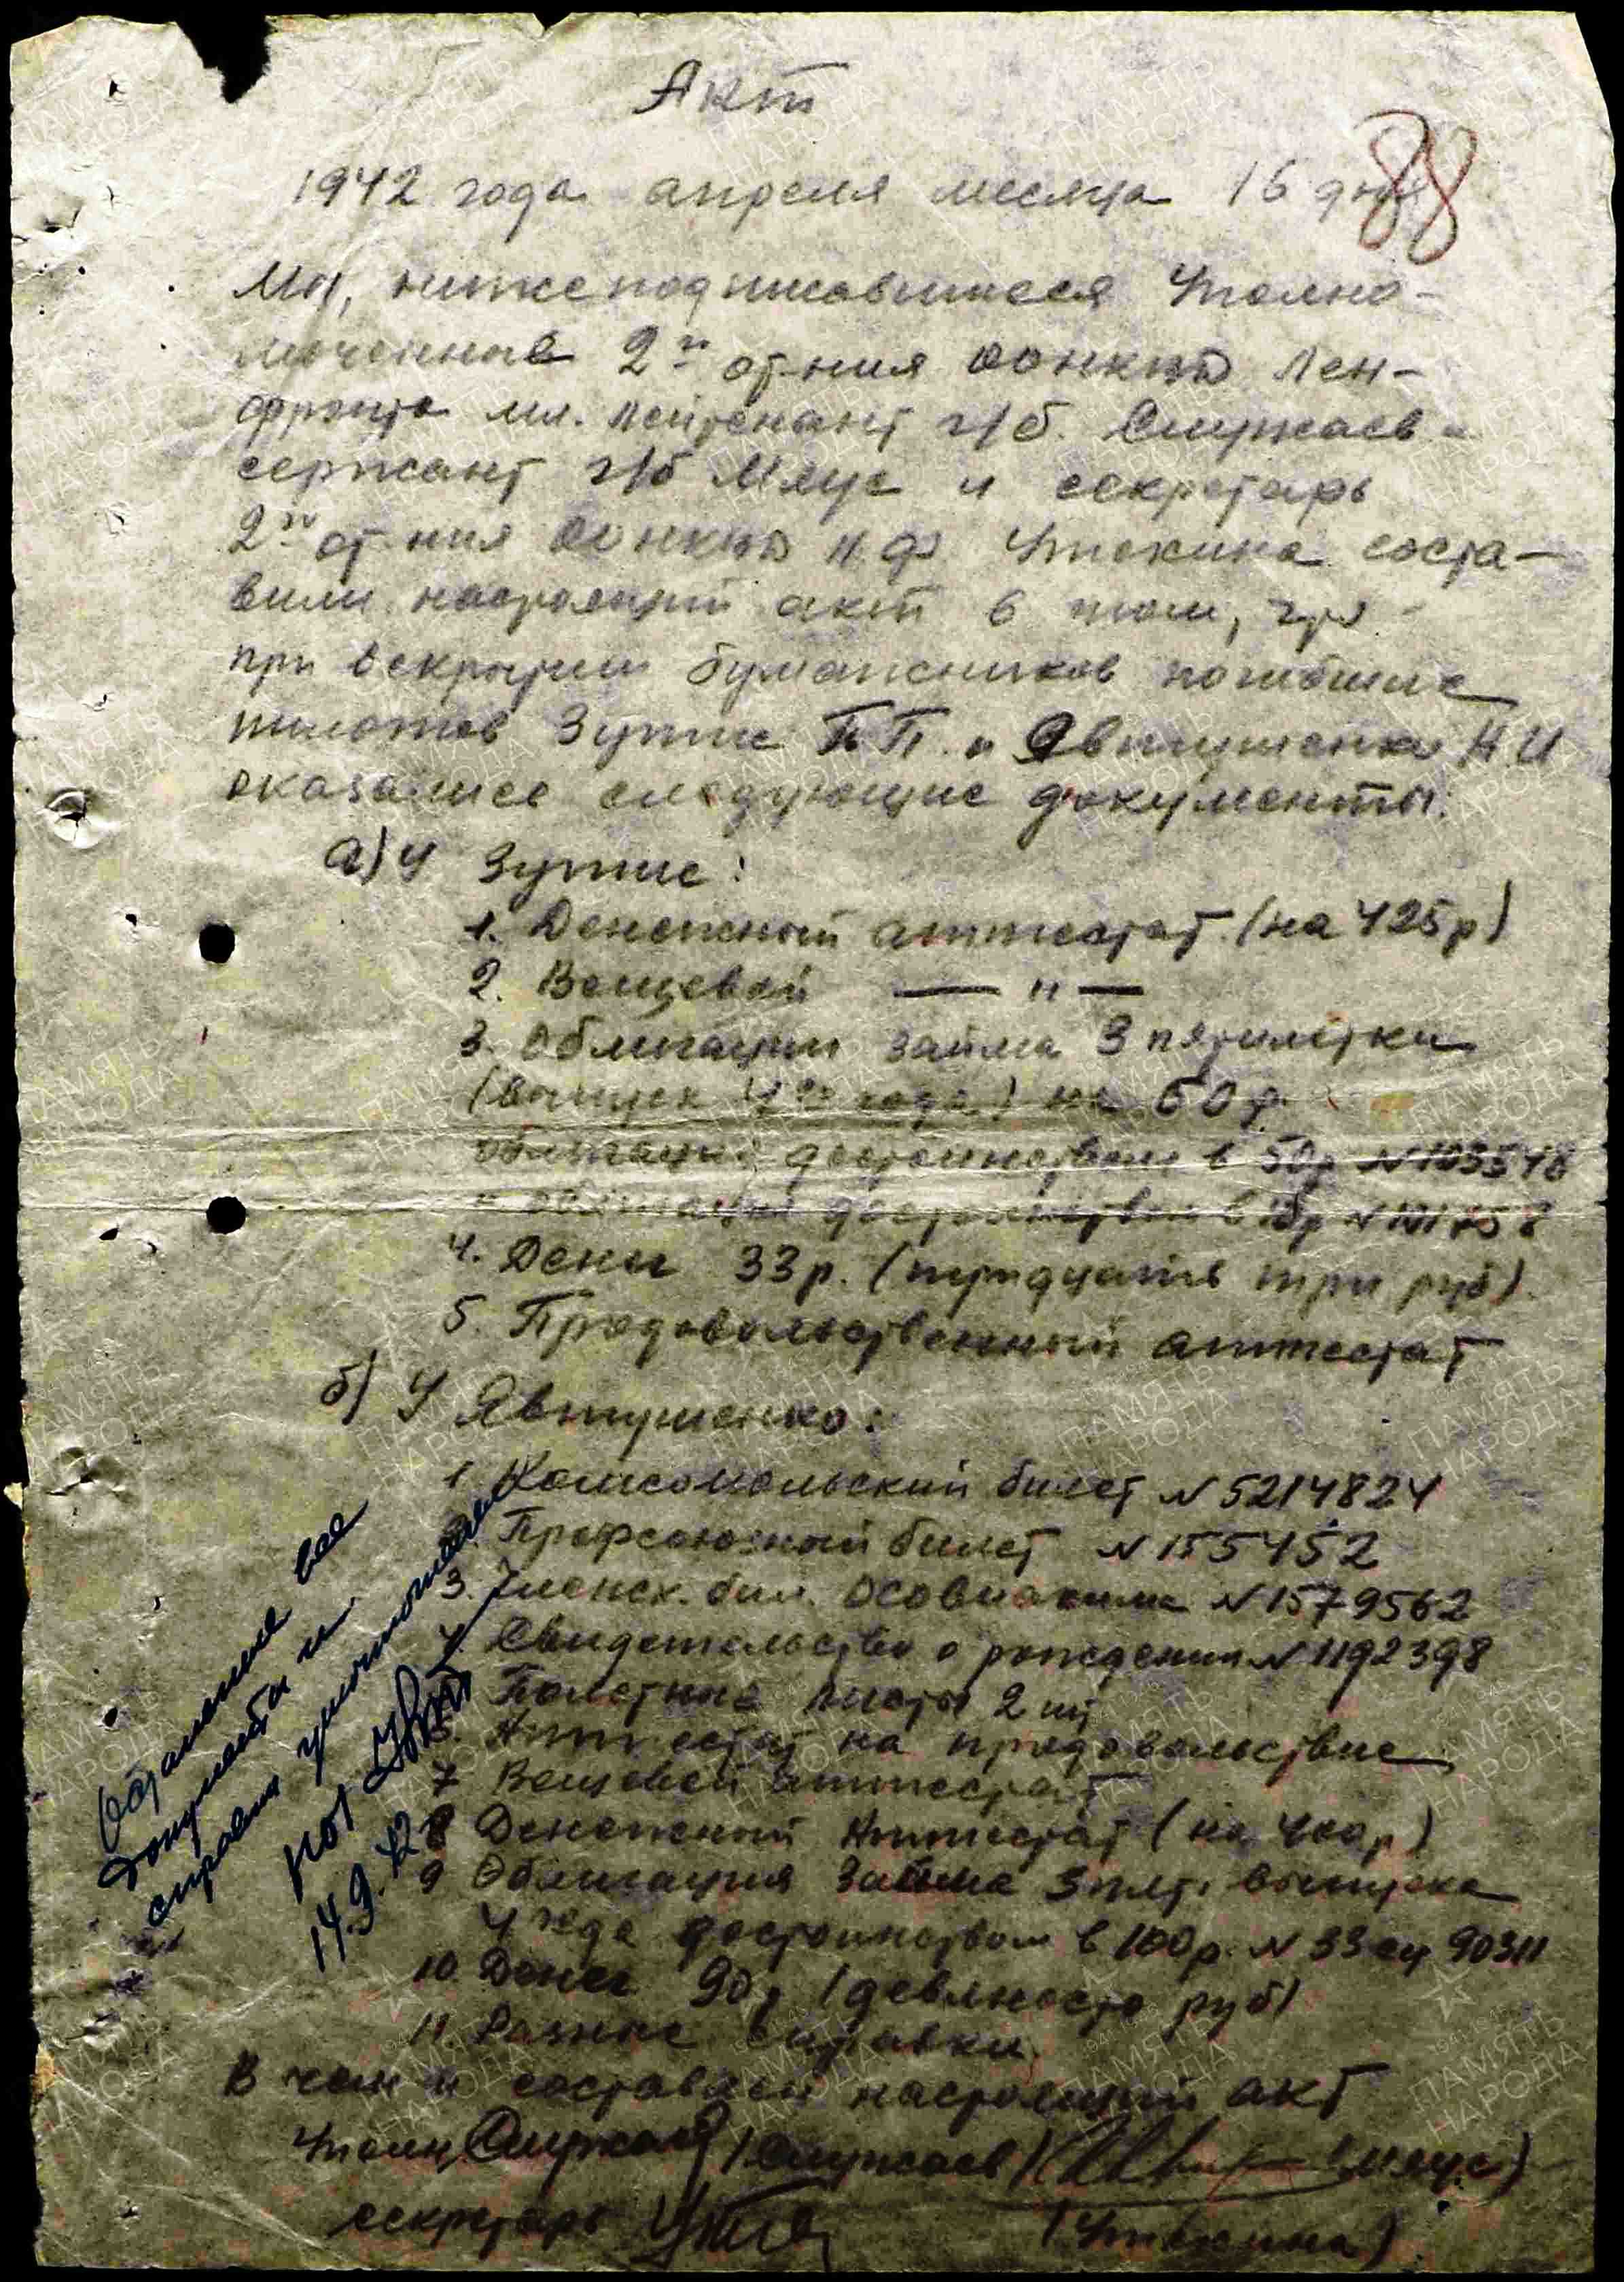 Акт
88
1942 года апреля месяца 16 дня
Мы, нижеподписавшиеся Уполно-
моченные 2го от-ния ОО НКВД Лен-
фронта мл. лейтенант г/б. Служаев
сержант г/б Мяус и секретарь
2го от-ния ОО НКВД ЛФ Утехина соста-
вили настоящий акт в том, что
при вскрытии бумажников погибших
пилотов Зутис П.П. и Явтушенко Н И
оказались следующие документы:
а) У Зутис:
1. Денежный аттестат (на 425 р)
2. Вещевой — " —
3. Облигации займа 3 пятилетки
(выпуск 4го года) на 60 р.
облигация достоинством в 50 р N 103548
" облигация достоинством в 10 р N 101758
4. Денег 33 р. (тридцать три руб).
5. Продовольственный аттестат
б) У Явтушенко:
1 Комсомольский билет N 5214824
Профсоюзный билет N 155452
3. Членск. бил. Осовиахима N 1579562
4. Свидетельство о рождении N 1192398
Полетные листы 2 шт
6. Аттестат на продовольствие
7 Вещевой аттестат
8 Денежный Аттестат (на 400 р)
9 Облигация Займа 3 пят. выпуска
4 года достоинством в 100 р. N 33 сч 90311
10. Денег 90 р (девяносто руб)
11 Разные справки.
В чем и составлен настоящий акт
Уполн. (Служаев) (Мяус)
секретарь (Утехина)
Остальные все
документы и
справки уничтожены
14.9.42